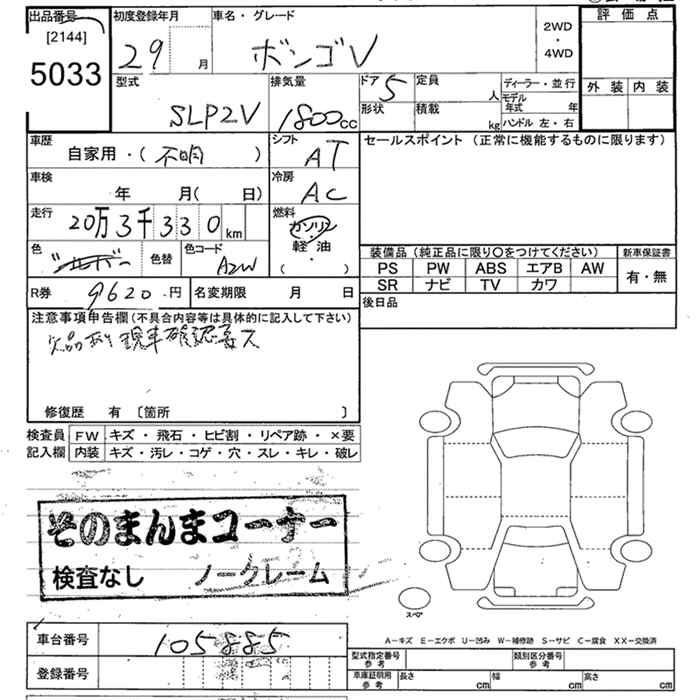 出品番号 初度登録年月 車名・グレード 評価点
[2144] 2WD
5033 29 月 ボンゴV ・
4WD
型式 排気量 ドア 5 定員 人 ディーラー・並行 外装 内装
SLP2V 1800cc 形状 積載 kg モデル年式 年
ハンドル 左・右
車歴 自家用・( 不明 ) シフト AT セールスポイント (正常に機能するものに限ります)
車検 年 月( 日) 冷房 AC
走行 20万3千330km 燃料 ガソリン
軽油
( ・ )
色 シルバー 色替 色コード A2W
装備品 (純正品に限り〇をつけてください) 新車保証書
PS PW ABS エアB AW 有・無
SR ナビ TV カワ
R券 9620円 名変期限 月 日 後日品
注意事項申告欄 (不具合内容等は具体的に記入して下さい)
欠品あり 現車確認要ス
修復歴 有 〔箇所 〕
検査員 FW キズ・飛石・ヒビ割・リペア跡・×要
記入欄 内装 キズ・汚レ・コゲ・穴・スレ・キレ・破レ
そのまんまコーナー
検査なし ノークレーム
スペア
車台番号 105885
登録番号
A-キズ E-エクボ U-凹み W-補修跡 S-サビ C-腐食 XX-交換済
型式指定番号 参考 類別区分番号 参考
車庫証明用 参考 長さ cm 幅 cm 高さ cm